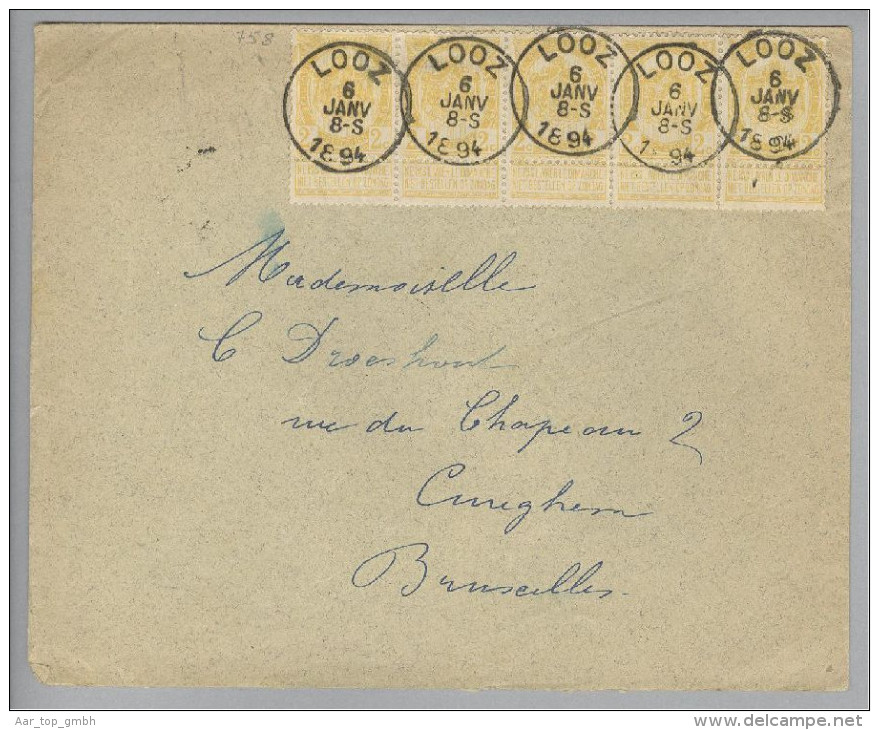 758
LOOZ
6
JANV
8-S
1894
LOOZ
6
JANV
8-S
1894
LOOZ
6
JANV
8-S
1894
LOOZ
6
JANV
8-S
1 94
LOOZ
6
JANV
8-S
1894
2 2
Mademoiselle
C Droeshout
rue du Chapeau 2
Cureghem
Bruxelles.
Aar_top_gmbh
www.delcampe.net